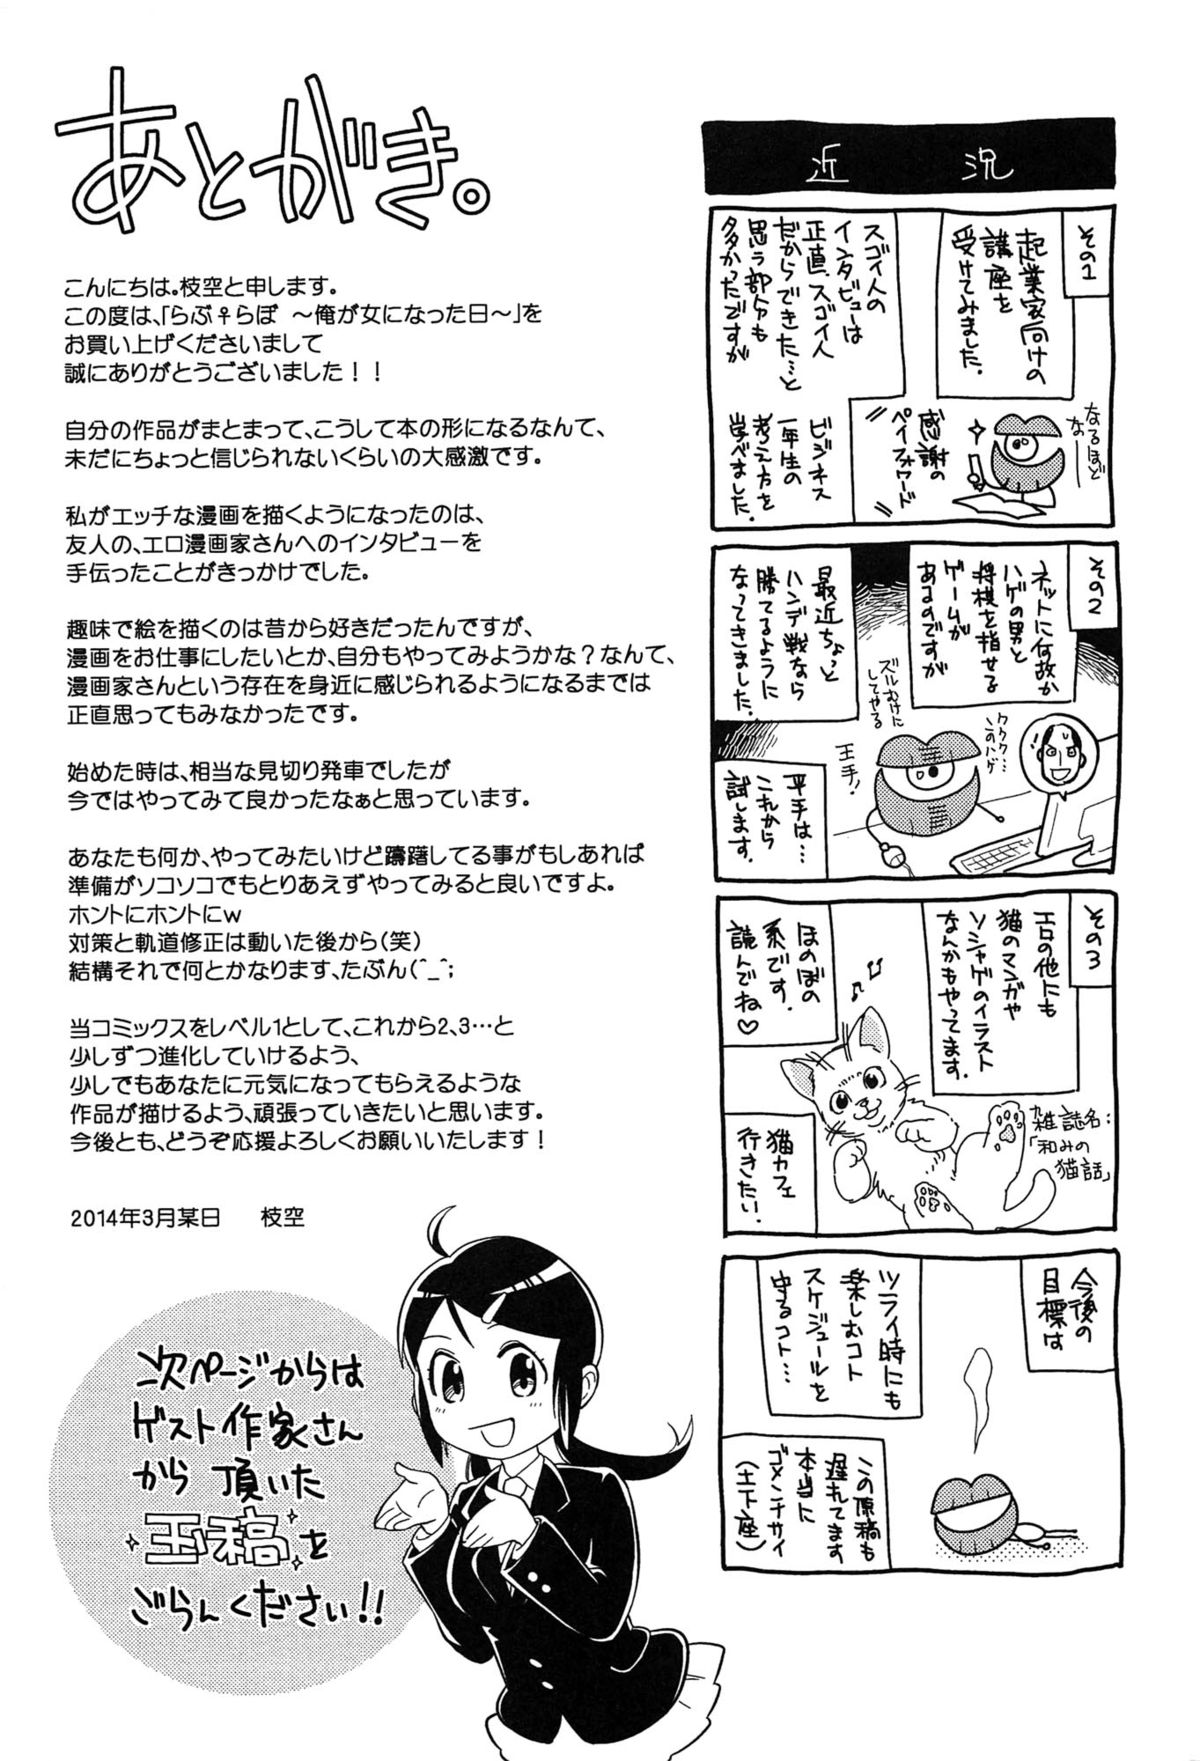 あとがき。
こんにちは。枝空と申します。
この度は、「らぶ♀らぼ ～俺が女になった日～」を
お買い上げくださいまして
誠にありがとうございました！！
自分の作品がまとまって、こうして本の形になるなんて、
未だにちょっと信じられないくらいの大感激です。
私がエッチな漫画を描くようになったのは、
友人の、エロ漫画家さんへのインタビューを
手伝ったことがきっかけでした。
趣味で絵を描くのは昔から好きだったんですが、
漫画をお仕事にしたいとか、自分もやってみようかな？なんて、
漫画家さんという存在を身近に感じられるようになるまでは
正直思ってもみなかったです。
始めた時は、相当な見切り発車でしたが
今ではやってみて良かったなぁと思っています。
あなたも何か、やってみたいけど躊躇してる事がもしあれば
準備がソコソコでもとりあえずやってみると良いですよ。
ホントにホントにw
対策と軌道修正は動いた後から(笑)
結構それで何とかなります、たぶん(^_^;
当コミックスをレベル1として、これから2、3…と
少しずつ進化していけるよう、
少しでもあなたに元気になってもらえるような
作品が描けるよう、頑張っていきたいと思います。
今後とも、どうぞ応援よろしくお願いいたします！
2014年3月某日 枝空
次ページからは
ゲスト作家さん
から頂いた
玉稿を
ごらんください!!
近況
その1
起業家向けの
講座を
受けてみました。
スゴイ人の
インタビューは
正直、スゴイ人
だからできた…と
思う部分も
多かったですが
なるほど
なー
感謝の
ペイフォワード
ビジネス
一年生の
考え方を
学べました。
その2
ネットに何故か
ハゲの男と
将棋を指せる
ゲームが
あるのですが
最近ちょっと
ハンデ戦なら
勝てるように
なってきました。
ククク…
このハゲ
ズルむけに
してやる
王手！
平手は…
これから
試します。
その3
エロの他にも
猫のマンガや
ソシャゲのイラスト
なんかもやってます。
ほのぼの
系です。
読んでね♡
♪♫
雑誌名：
「和みの
猫話」
猫カフェ
行きたい.
今後の
目標は
ツライ時にも
楽しむコト
スケジュールを
守るコト…
この原稿も
遅れてます
本当に
ゴメンナサイ
(土下座)